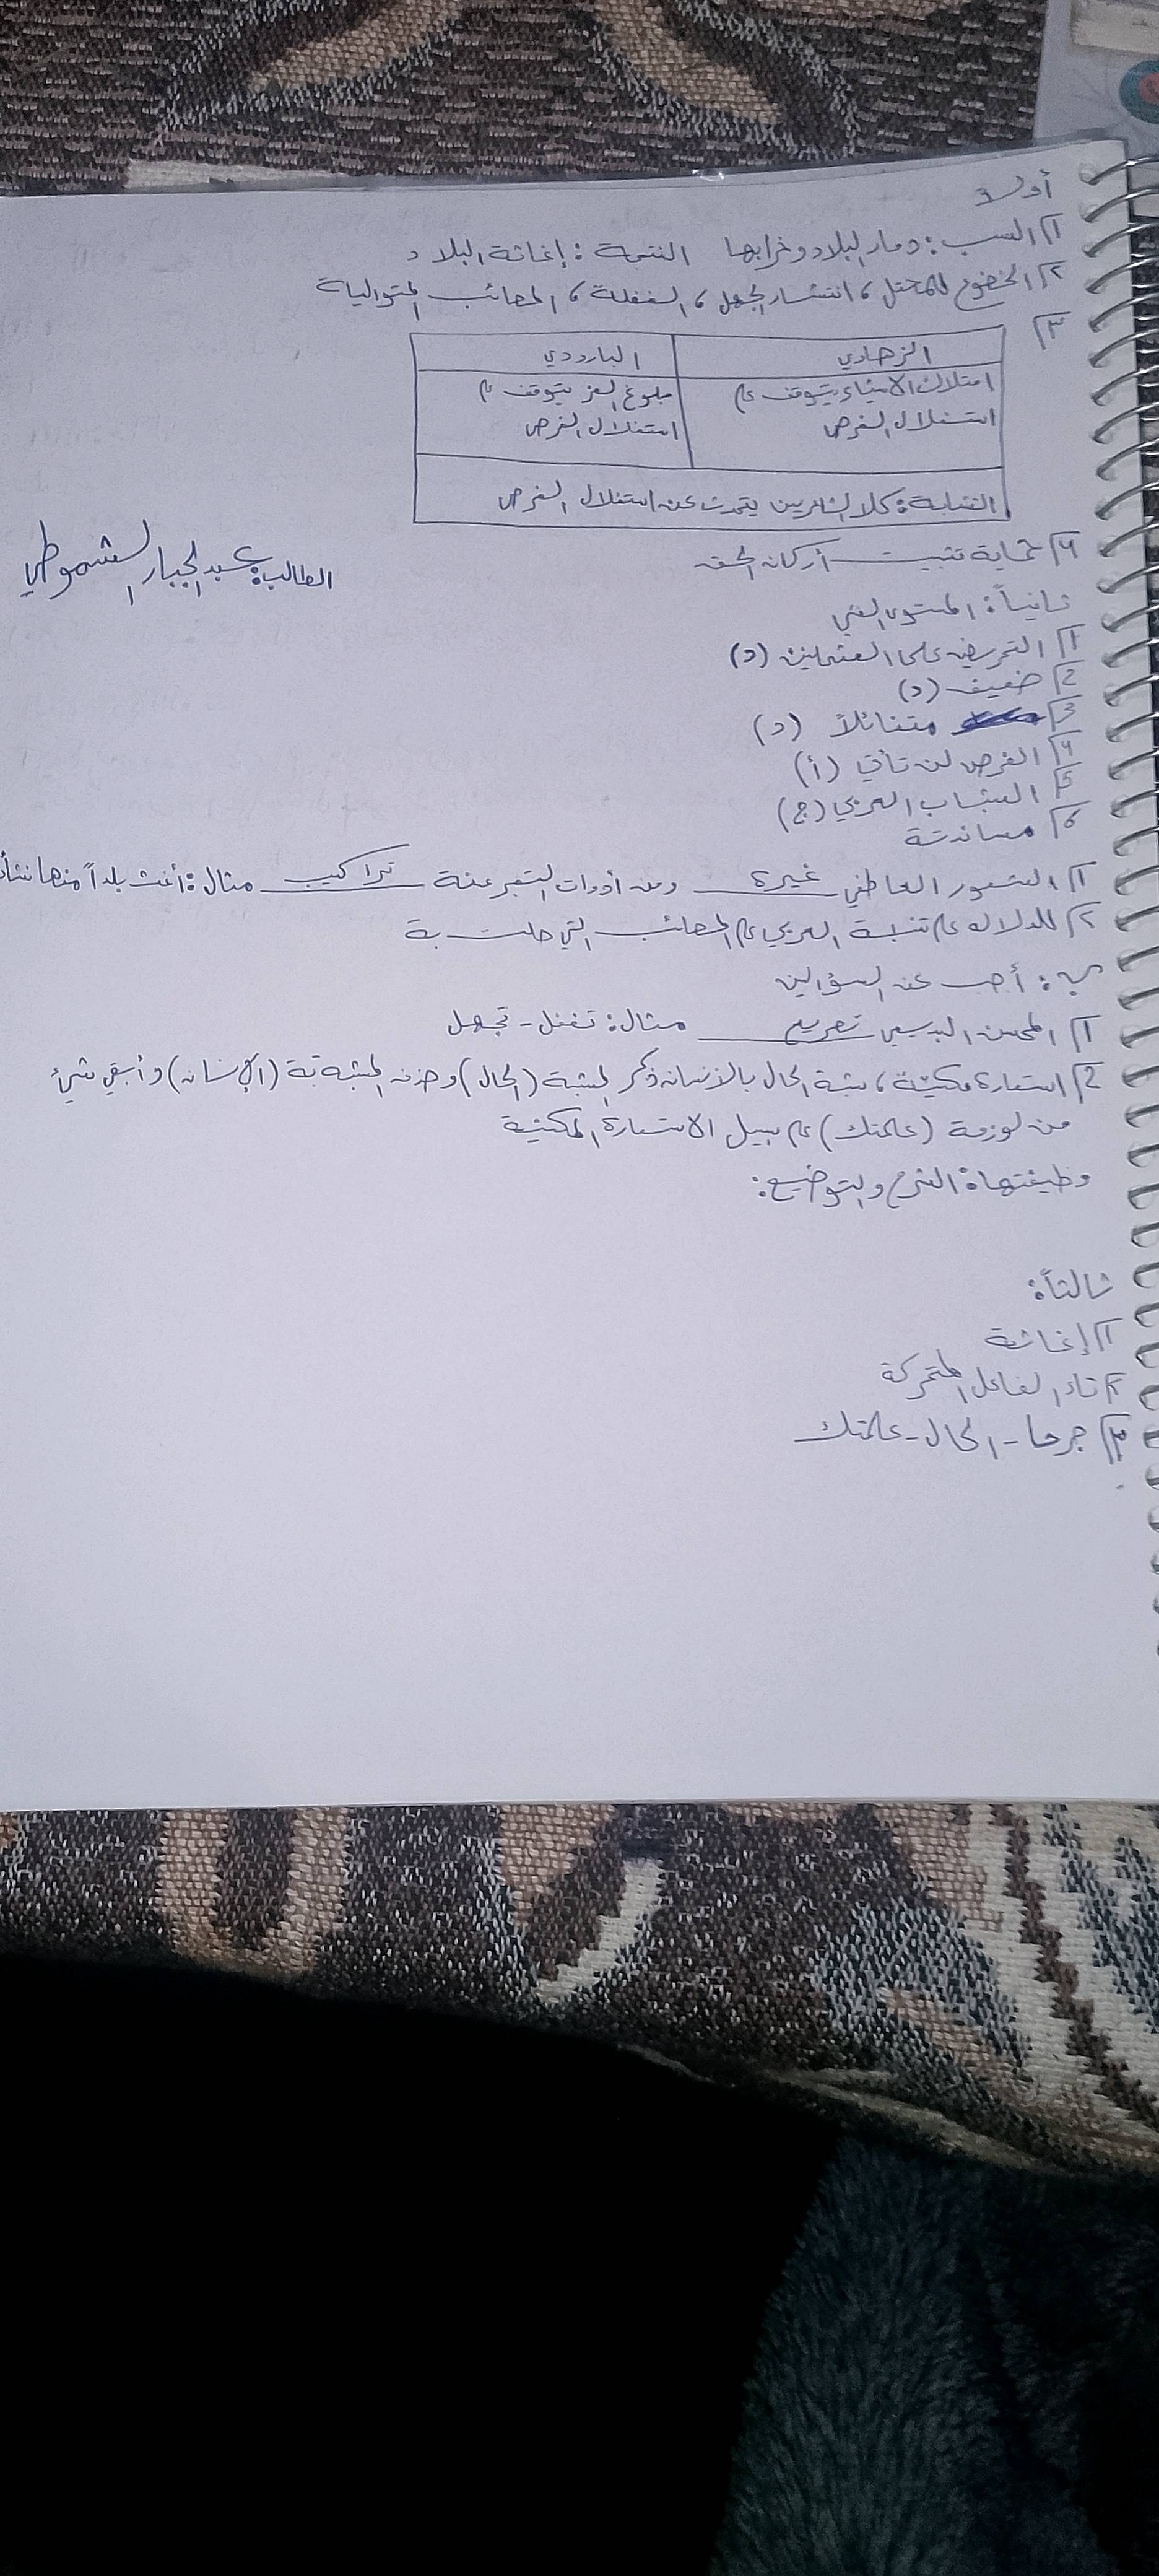 أولاً
١) السبب: دمار البلاد وخرابها النتيجة: إغاثة البلاد
٢) الخضوع للمحتل، انتشار الجهل، الغفلة، المصائب المتوالية
٣)
الزهاوي البارودي
امتلاك الأشياء يتوقف على بلوغ العز يتوقف على
استغلال الفرص استغلال الفرص
التشابة: كلا الشاعرين يتحدث عن استغلال الفرص
٤) حماية تثبيت أركان الحق
الطالب: عبد الجبار الشموطي
ثانياً: المستوى الفني
١) التحريض على العثمانين (د)
2) ضعيف (د)
3) متفائلاً (د)
٤) الفرص لن تأتي (أ)
5) الشباب العربي (ج)
٦) مساندة
١) الشعور العاطفي غيرة ومن أدوات التعبير عنة تراكيب مثال: أغث بلداً منها نشأت
٢) للدلاله على تنبية العربي على المصائب التي حلت بة
ب: أجب عن السؤالين
١) المحسن البديعي تصريع مثال: تغفل - تجهل
2) استعارة مكنية، شبة الحال بالانسان ذكر المشبة (الحال) وحذف المشبة بة (الإنسان) وأبقى شيئ
من لوزمة (علمتك) على سبيل الاستعارة المكنية
وظيفتها: الشرح والتوضيح:
ثالثاً:
١) إغاثة
٢) تاء الفاعل المتحركة
٣) جرحا - الحال - علمتك